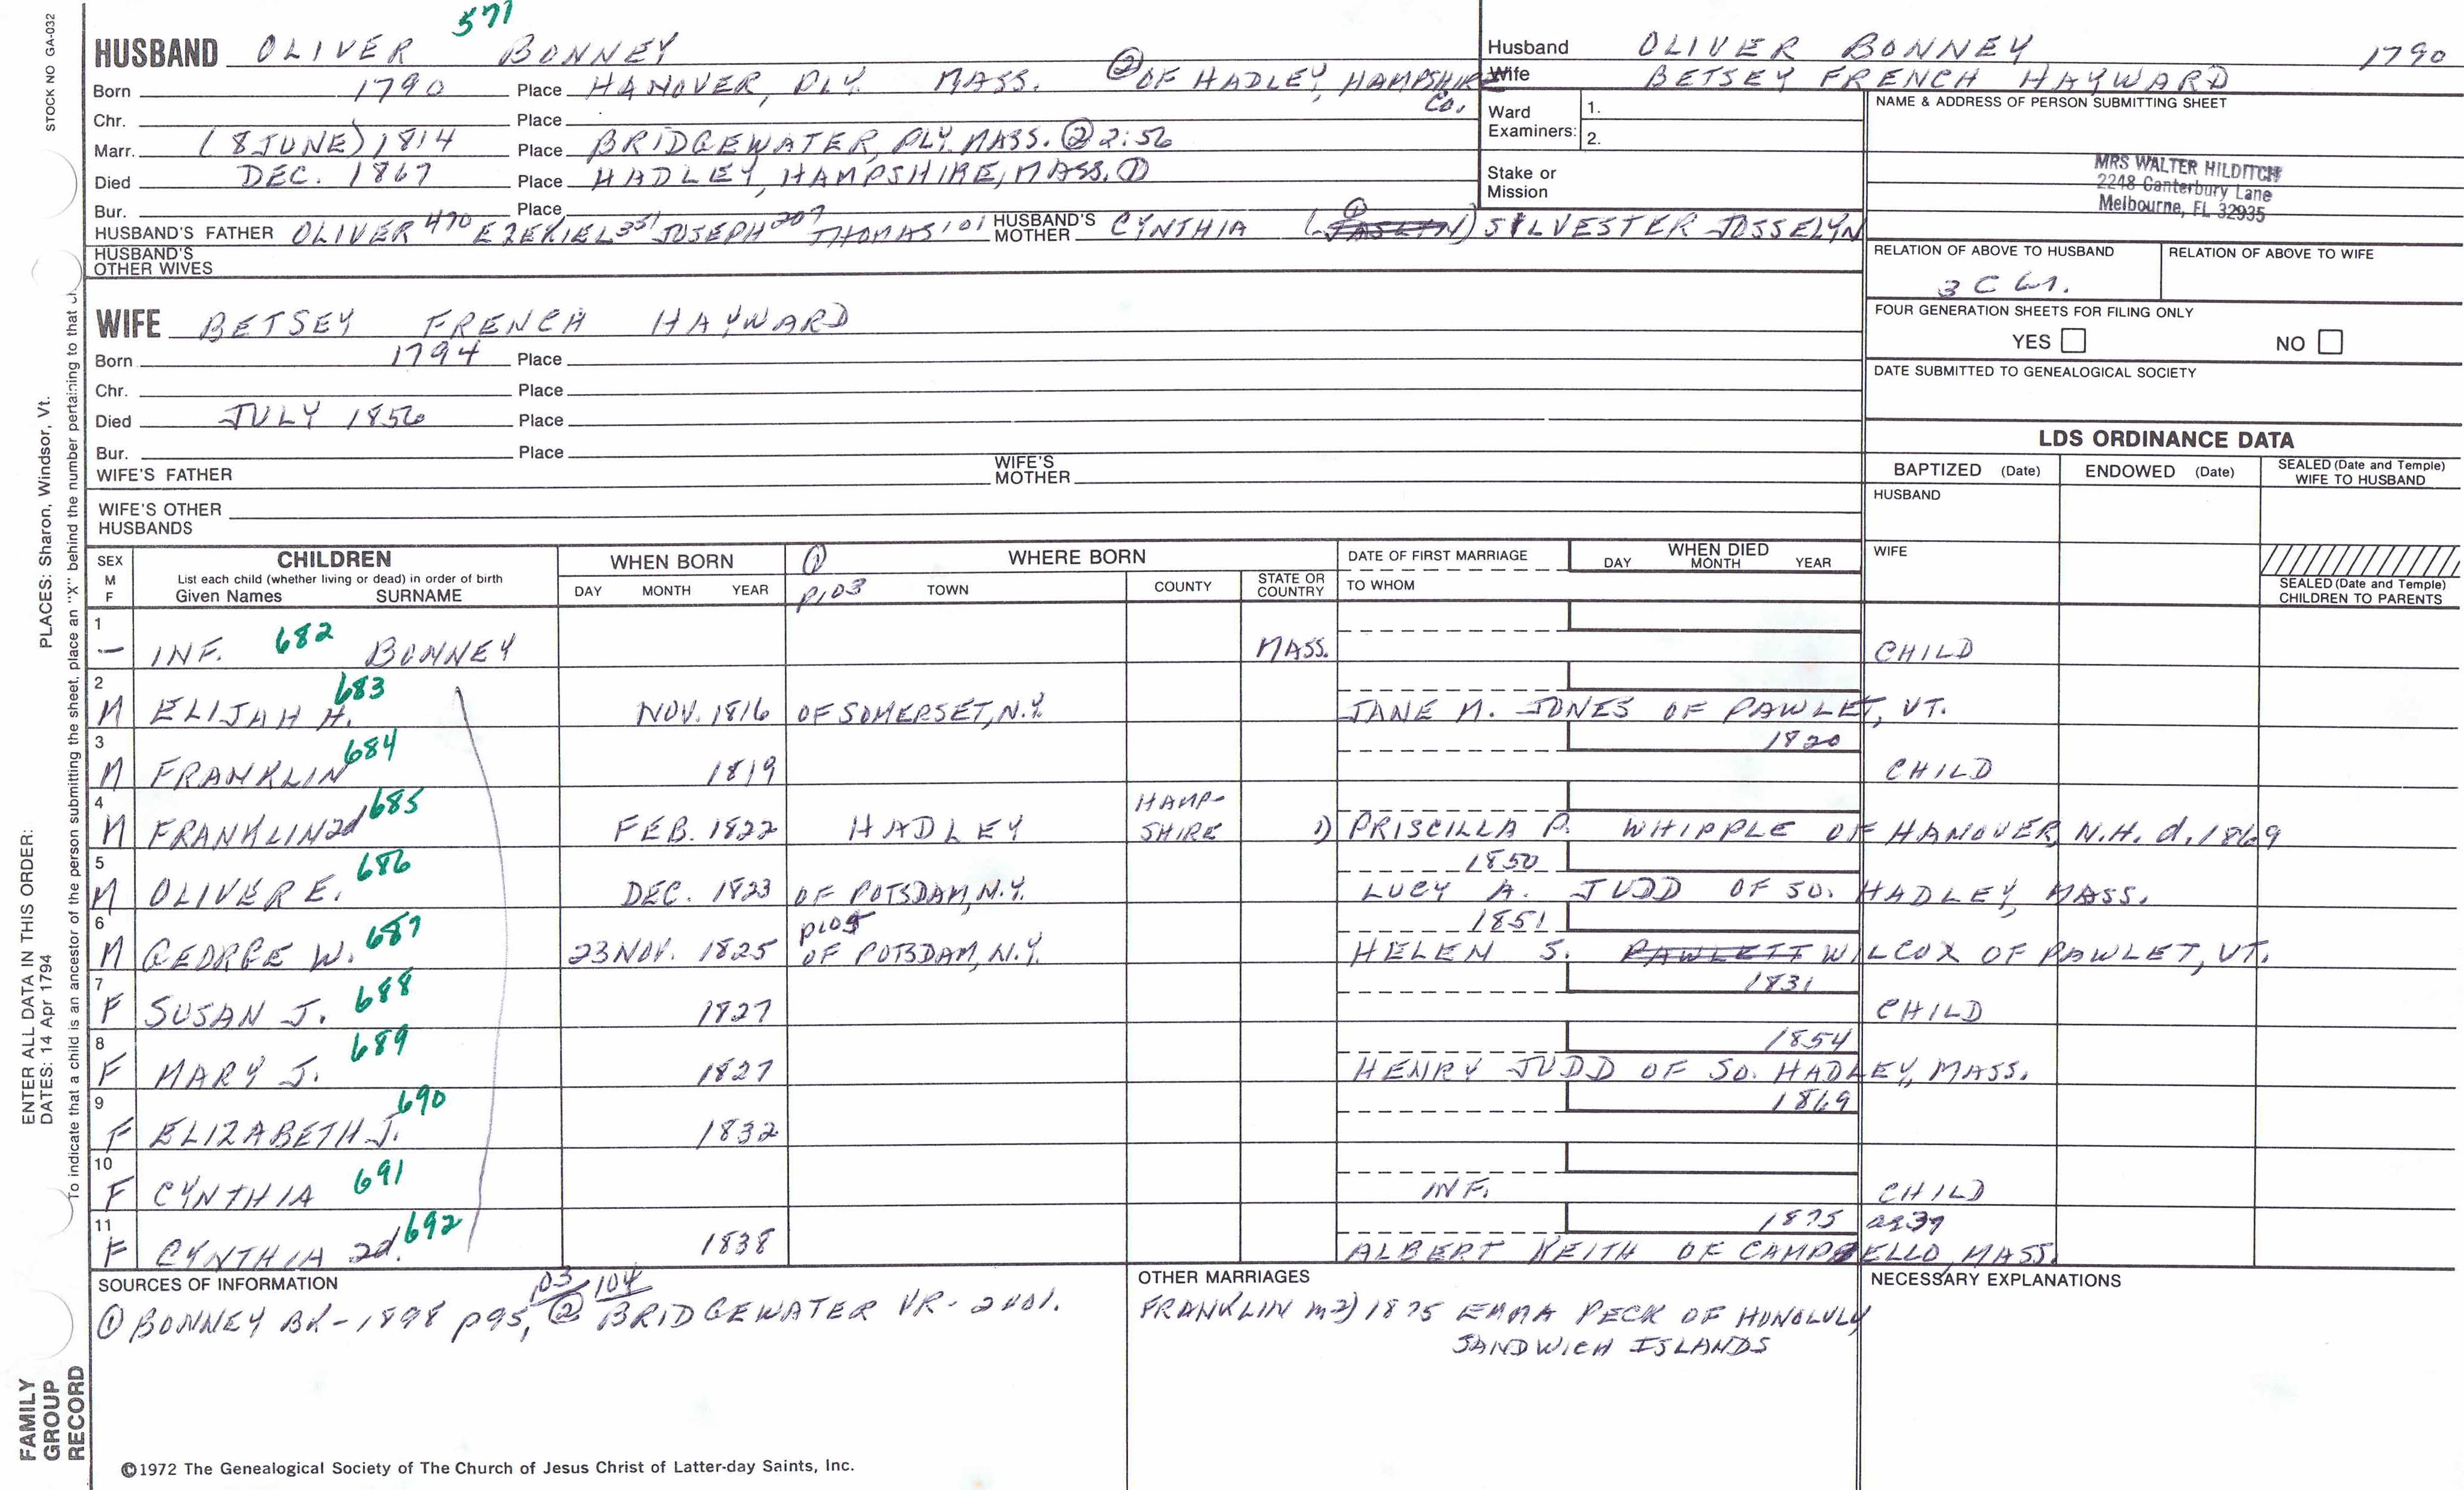 STOCK NO GA-032
571
HUSBAND OLIVER BONNEY
Born 1790 Place HANOVER, PLY. MASS. ② OF HADLEY, HAMPSHIRE CO.
Chr. Place
Marr. (8 JUNE) 1814 Place BRIDGEWATER, PLY. MASS. ② 2:56
Died DEC. 1867 Place HADLEY, HAMPSHIRE, MASS. ①
Bur. Place
HUSBAND'S FATHER OLIVER 470 EZEKIEL 351 JOSEPH 207 THOMAS 101 HUSBAND'S MOTHER CYNTHIA ( ) ① SILVESTER JOSSELYN
HUSBAND'S OTHER WIVES
WIFE BETSEY FRENCH HAYWARD
Born 1794 Place
Chr. Place
Died JULY 1856 Place
Bur. Place
WIFE'S FATHER WIFE'S MOTHER
WIFE'S OTHER HUSBANDS
Husband OLIVER BONNEY 1790
Wife BETSEY FRENCH HAYWARD
Ward 1.
Examiners: 2.
Stake or Mission
NAME & ADDRESS OF PERSON SUBMITTING SHEET
MRS WALTER HILDITCH
2248 Canterbury Lane
Melbourne, FL 32935
RELATION OF ABOVE TO HUSBAND RELATION OF ABOVE TO WIFE
3 C
FOUR GENERATION SHEETS FOR FILING ONLY
YES NO
DATE SUBMITTED TO GENEALOGICAL SOCIETY
LDS ORDINANCE DATA
BAPTIZED (Date) ENDOWED (Date) SEALED (Date and Temple) WIFE TO HUSBAND
HUSBAND
WIFE
SEALED (Date and Temple) CHILDREN TO PARENTS
SEX M F
CHILDREN
List each child (whether living or dead) in order of birth
Given Names SURNAME
WHEN BORN
DAY MONTH YEAR
① WHERE BORN
P103 TOWN COUNTY STATE OR COUNTRY
DATE OF FIRST MARRIAGE
TO WHOM
WHEN DIED
DAY MONTH YEAR
1 — INF. 682 BONNEY MASS. CHILD
2 M ELIJAH H. 683 NOV. 1816 OF SOMERSET, N.Y. JANE M. JONES OF PAWLET, VT.
3 M FRANKLIN 684 1819 1820 CHILD
4 M FRANKLIN 2d 685 FEB. 1822 HADLEY HAMP-SHIRE 1) PRISCILLA P. WHIPPLE OF HANOVER, N.H. d. 1869
5 M OLIVER E. 686 DEC. 1823 OF POTSDAM, N.Y. 1850 LUCY A. JUDD OF SO. HADLEY, MASS.
6 M GEORGE W. 687 23 NOV. 1825 OF POTSDAM, N.Y. 1851 HELEN S. PAWLETT WILCOX OF PAWLET, VT.
7 F SUSAN J. 688 1827 1831 CHILD
8 F MARY J. 689 1827 1854 HENRY JUDD OF SO. HADLEY, MASS.
9 F ELIZABETH J. 690 1832 1869
10 F CYNTHIA 691 INF. CHILD
11 F CYNTHIA 2d. 692 1838 1875 ALBERT KEITH OF CAMPBELLO, MASS.
SOURCES OF INFORMATION
① BONNEY BK - 1898 p95, 103/104 ② BRIDGEWATER VR - 2 vol.
OTHER MARRIAGES
FRANKLIN m2) 1875 EMMA PECK OF HONOLULU
SANDWICH ISLANDS
NECESSARY EXPLANATIONS
©1972 The Genealogical Society of The Church of Jesus Christ of Latter-day Saints, Inc.
FAMILY GROUP RECORD
ENTER ALL DATA IN THIS ORDER:
DATES: 14 Apr 1794
PLACES: Sharon, Windsor, Vt.
To indicate that a child is an ancestor of the person submitting the sheet, place an "X" behind the number pertaining to that